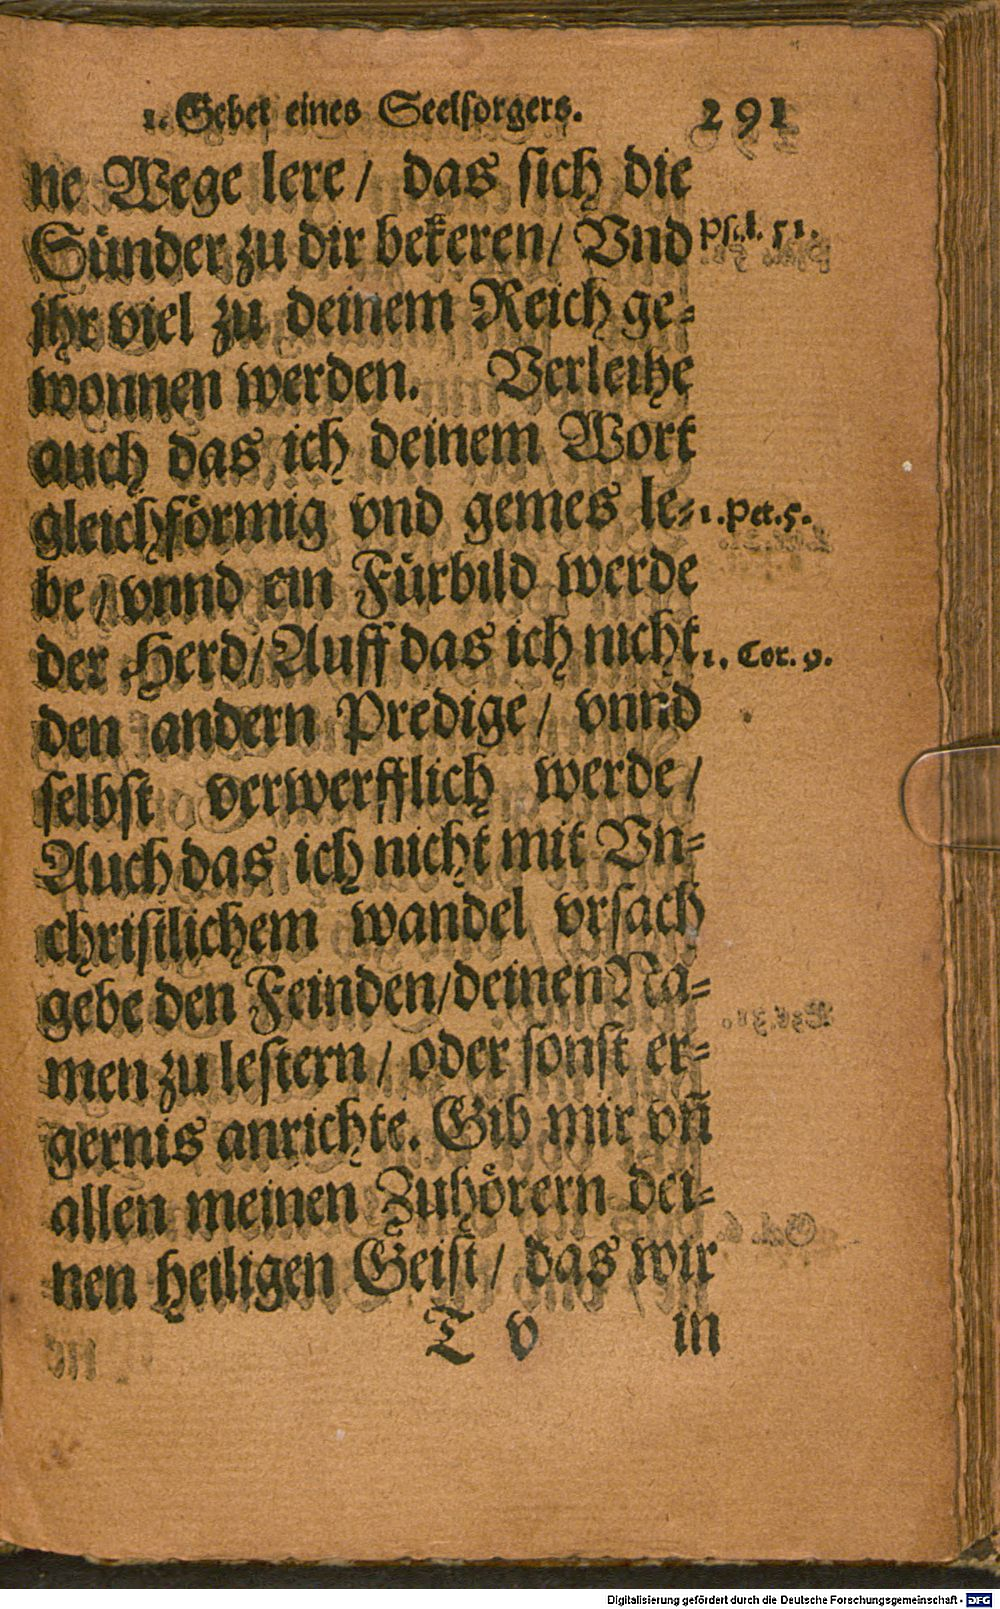 1. Gebet eines Seelsorgers. 291
ne Wege lere / das sich die
Sünder zu dir bekeren / Vnd Psal. 51.
jhr viel zu deinem Reich ge-
wonnen werden. Verleihe
auch das ich deinem Wort
gleichförmig vnd gemes le- 1. Pet. 5.
be / vnnd ein Fürbild werde
der Herd / Auff das ich nicht 1. Cor. 9.
den andern Predige / vnnd
selbst verwerfflich werde /
Auch das ich nicht mit Vn-
christlichem wandel vrsach
gebe den Feinden / deinen Na-
men zu lestern / oder sonst er-
gernis anrichte. Gib mir vn̄
allen meinen Zuhörern dei-
nen heiligen Geist / das wir
T v in
Digitalisierung gefördert durch die Deutsche Forschungsgemeinschaft - DFG